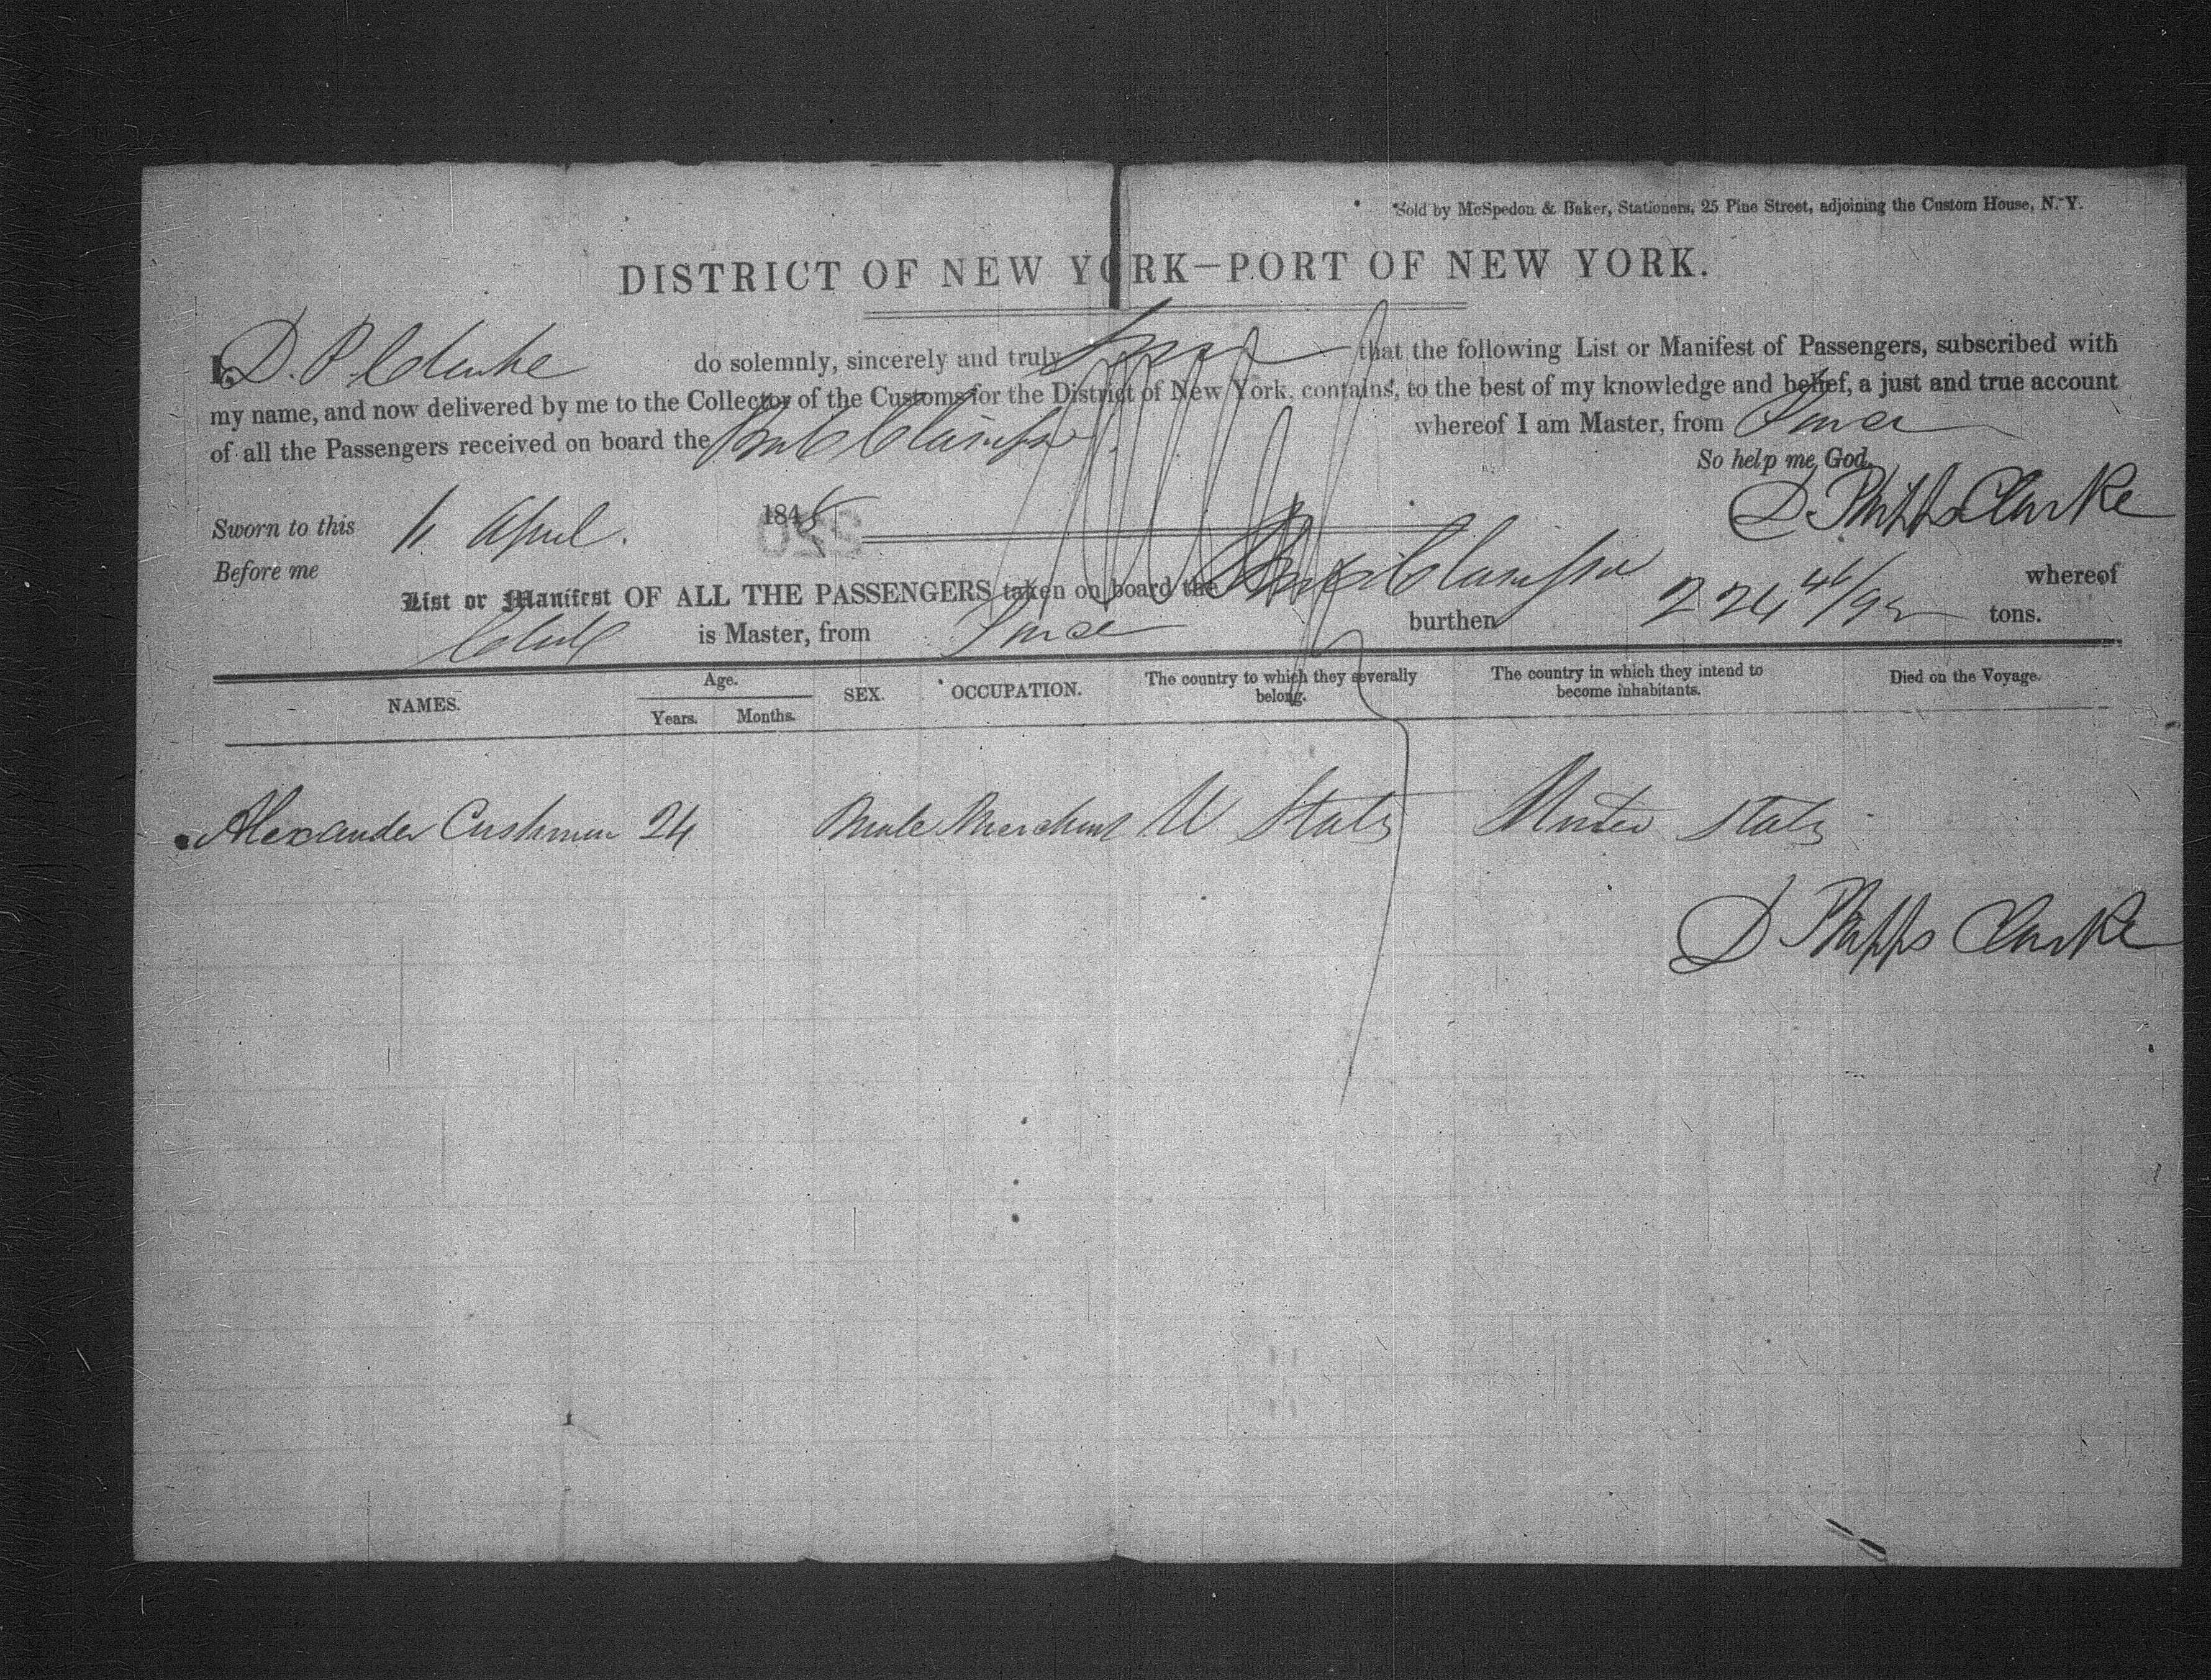 Sold by McSpedon & Baker, Stationers, 25 Pine Street, adjoining the Custom House, N. Y.
DISTRICT OF NEW YORK—PORT OF NEW YORK.
I, D. P. Clarke do solemnly, sincerely and truly that the following List or Manifest of Passengers, subscribed with
my name, and now delivered by me to the Collector of the Customs for the District of New York, contains, to the best of my knowledge and belief, a just and true account
of all the Passengers received on board the whereof I am Master, from
So help me God.
D Phipps Clarke
Sworn to this 11 April. 184
Before me
List or Manifest OF ALL THE PASSENGERS taken on board the whereof
is Master, from burthen 224 tons.
NAMES. Age. Years. Months. SEX. OCCUPATION. The country to which they severally belong. The country in which they intend to become inhabitants. Died on the Voyage.
Alexander Cushman 24 Male Merchant U States United States
D Phipps Clarke